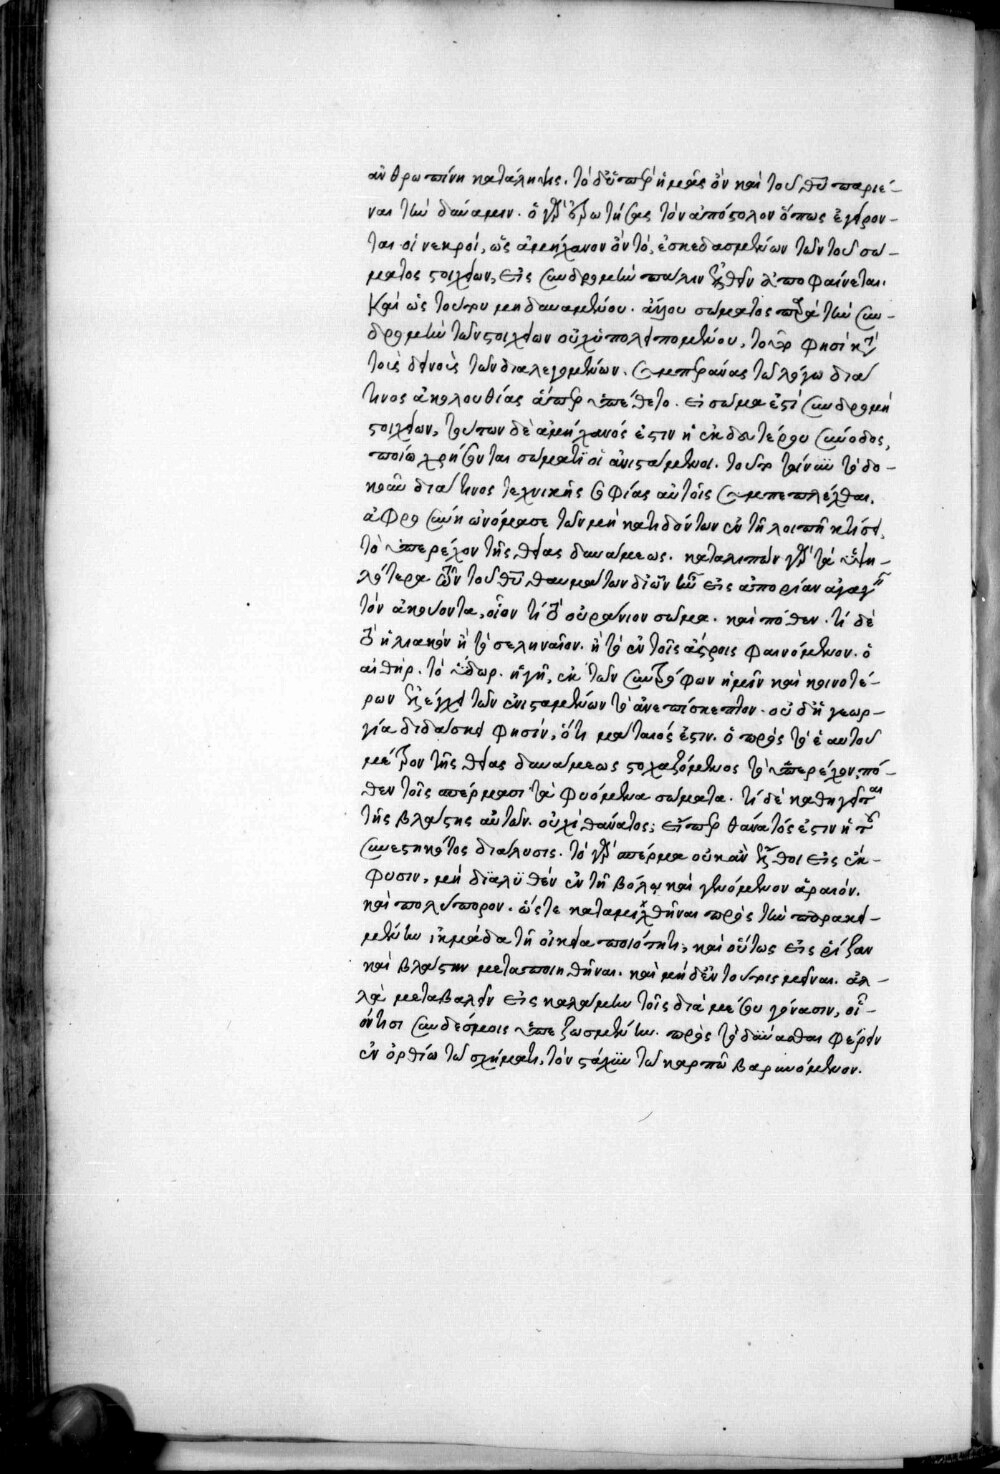 ἀνθρωπίνη κατάληψις. τὸ δ' ὑπὲρ ἡμᾶς ὂν καὶ τοῦ θῦ παριέ-
ναι τὴν δύναμιν. ὁ γὰρ ἐρωτήσας τὸν ἀπόστολον ὅπως ἐγείρον-
ται οἱ νεκροί, ὡς ἀμήχανον ὂν τὸ, ἐσκεδασμένων τῶν τοῦ σώ-
ματος στοιχείων, εἰς συνδρομὴν πάλιν ἐλθεῖν ἀποφαίνεται.
Καὶ ὡς τούτου μὴ δυναμένου. ἄλλου σώματος παρὰ τὴν συν-
δρομὴν τῶν στοιχείων οὐχ ὑπολειπομένου, τοῦτο φησὶ κατὰ
τοὺς δεινοὺς τῶν διαλεγομένων. συμπεράνας τῷ λόγῳ διά
τινος ἀκολουθίας ἅπερ ὑπέθετο. εἰ σῶμα ἐστὶ συνδρομὴ
στοιχείων, τούτων δὲ ἀμήχανός ἐστιν ἡ ἐκ δευτέρου σύνοδος,
ποίῳ χρήσονται σώματι οἱ ἀνιστάμενοι. τοῦτο τοίνυν τὸ δο-
κοῦν διά τινος τεχνικῆς σοφίας αὐτοῖς συμπεπλέχθαι.
ἀφροσύνη ὠνόμασε τῶν μὴ κατιδόντων ἐν τῇ λοιπῇ κτίσει,
τὸ ὑπερέχον τῆς θείας δυνάμεως. καταλιπὼν γὰρ τὰ ὑψη-
λότερα τῶν τοῦ θῦ θαυμάτων δι' ὧν ἦν εἰς ἀπορίαν ἀγαγεῖν
τὸν ἀκούοντα, οἷον τί τὸ οὐράνιον σῶμα. καὶ πόθεν. τί δὲ
τὸ ἡλιακὸν ἢ τὸ σεληναῖον. ἢ τὸ ἐν τοῖς ἄστροις φαινόμενον. ὁ
αἰθήρ. τὸ ὕδωρ. ἡ γῆ, ἐκ τῶν συντρόφων ἡμῖν καὶ κοινοτέ-
ρων ἐξελέγχει τῶν ἐνισταμένων τὸ ἀνεπίσκεπτον. οὐδ' ἡ γεωρ-
γία διδάσκει φησίν, ὅτι μάταιός ἐστιν. ὁ πρὸς τὸ ἑαυτοῦ
μέτρον τῆς θείας δυνάμεως στοχαζόμενος τὸ ὑπερέχον; πό-
θεν τοῖς σπέρμασι τὰ φυόμενα σώματα. τί δὲ καθηγεῖται
τῆς βλάστης αὐτῶν. οὐχὶ θάνατος; εἴπερ θάνατός ἐστιν ἡ τοῦ
συνεστηκότος διάλυσις. τὸ γὰρ σπέρμα οὐκ ἂν ἔλθοι εἰς ἔκ-
φυσιν, μὴ διαλυθὲν ἐν τῇ βώλῳ καὶ γενόμενον ἀραιόν.
καὶ πολύπορον. ὥστε καταμιχθῆναι πρὸς τὴν παρακει-
μένην ἰκμάδα τῇ οἰκείᾳ ποιότητι, καὶ οὕτως εἰς ῥίζαν
καὶ βλάστην μεταποιηθῆναι. καὶ μηδ' ἐν τούτοις μεῖναι. ἀλ-
λὰ μεταβαλεῖν εἰς καλάμην τοῖς διὰ μέσου γόνασιν, οἱ-
όντισι συνδέσμοις ὑπεζωσμένην. πρὸς τὸ δύνασθαι φέρειν
ἐν ὀρθίῳ τῷ σχήματι, τὸν στάχυν τῷ καρπῷ βαρυνόμενον.